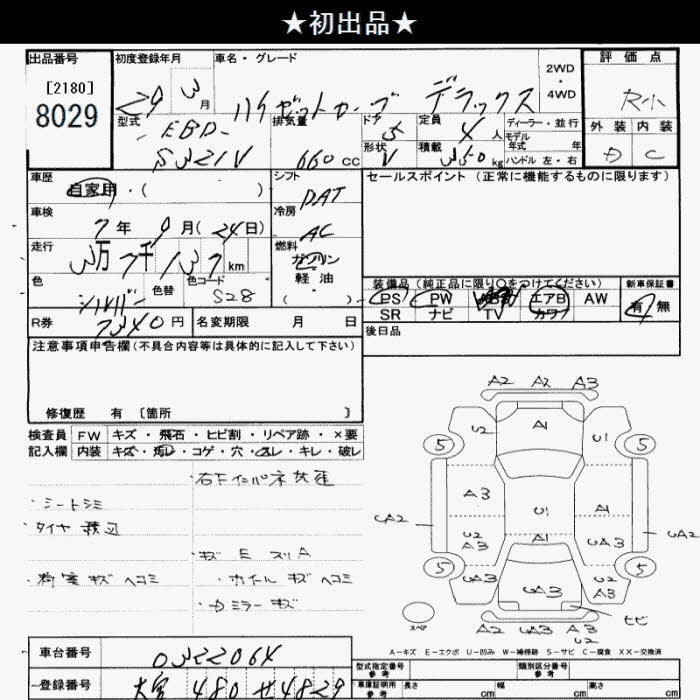 ★初出品★
出品番号
[2180]
8029
初度登録年月
29 3 月
車名・グレード
ハイゼットカーゴ デラックス
2WD
・
4WD
評価点
R小
外装 内装
D C
型式
EBD-
S321V
排気量
660 cc
ドア
5
形状
V
定員
4 人
積載
350 kg
ディーラー・並行
モデル
年式 年
ハンドル 左・右
車歴
自家用・( )
車検
7 年 9 月(24日)
走行
3万7千137 km
色
シルバー
色替
色コード
S28
シフト
DAT
冷房
AC
燃料
ガソリン
軽油
( )
セールスポイント(正常に機能するものに限ります)
装備品(純正品に限り○をつけてください)
PS PW エアB AW
SR ナビ TV カワ
新車保証書
有 無
R券
7340円
名変期限 月 日
後日品
注意事項申告欄(不具合内容等は具体的に記入して下さい)
修復歴 有 〔箇所 〕
検査員
記入欄
FW キズ・飛石・ヒビ割・リペア跡・×要
内装 キズ・汚レ・コゲ・穴・スレ・キレ・破レ
・シートシミ
・タイヤ
・荷室キズヘコミ
・キズ E スリA
・ホイールキズヘコミ
・カミラーキズ
A2 A2 A3
U2 A1 U1
5 5
A3 U1 A1
UA2 UA2
U2 A3 A1 UA3
5 5
UA3 UA3 U2 UA3
ヒビ
スペア
A2 UA3 A3
U2
A-キズ E-エクボ U-凹み W-補修跡 S-サビ C-腐食 XX-交換済
車台番号
0322064
登録番号
大宮 480 せ 4829
型式指定番号
参考
類別区分番号
参考
車庫証明用
参考
長さ cm
幅 cm
高さ cm